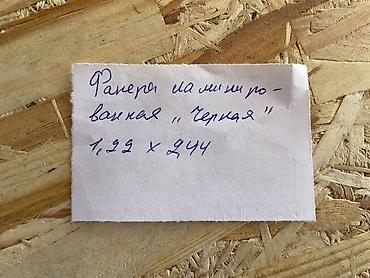 Фанера ламиниро-
ванная „Черная"
1,22 х 2,44